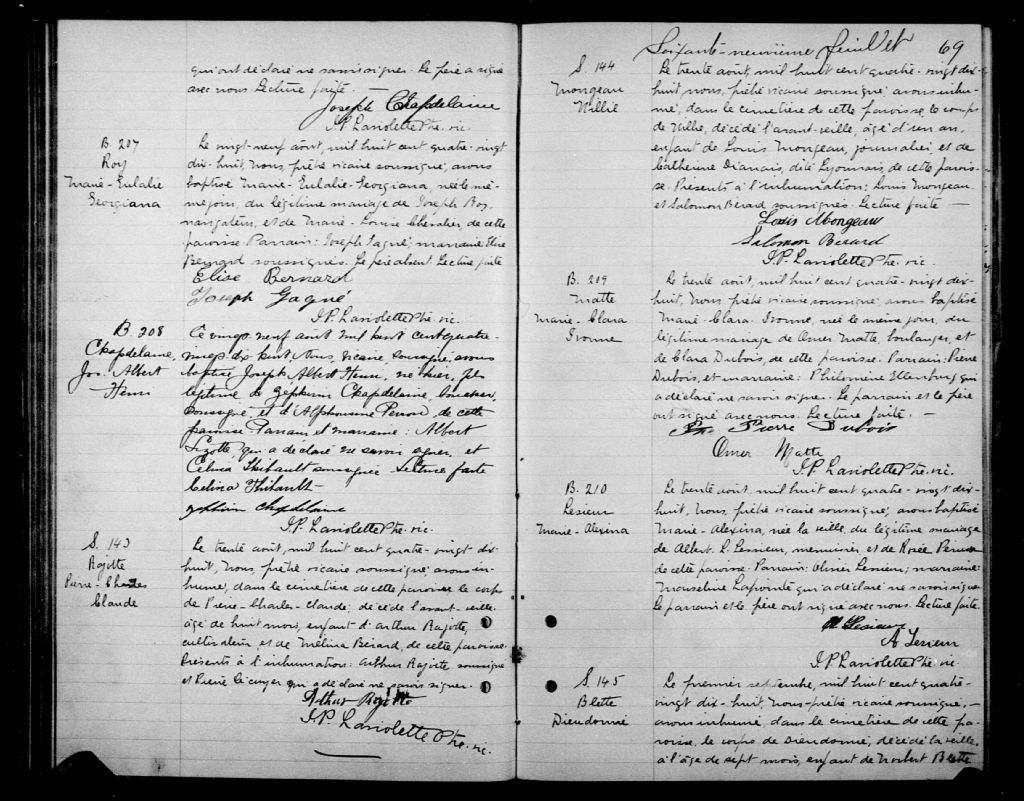 qui ont déclaré ne savoir signer. Le père a signé
avec nous. Lecture faite.
Joseph Chapdelaine
J.P. Laviolette Ptre. vic.
B. 207
Roy
Marie-Eulalie
Georgiana
Le vingt-neuf août, mil huit cent quatre-vingt
dix-huit, nous, prêtre vicaire soussigné, avons
baptisé Marie-Eulalie-Georgiana, née le mê-
me jour, du légitime mariage de Joseph Roy,
navigateur, et de Marie-Louise Chevalier, de cette
paroisse. Parrain: Joseph Gagné; marraine: Elise
Bernard soussignés. Le père absent. Lecture faite
Elise Bernard
Joseph Gagné
J.P. Laviolette Ptre. vic.
B 208
Chapdelaine,
Jos. Albert
Henri
Ce vingt neuf août mil huit cent quatre-
vingt dix huit, Nous, vicaire soussigné, avons
baptisé Joseph Albert Henri, né hier, fils
légitime de Zéphirin Chapdelaine, boucher,
soussigné, et d'Alphonsine Penon, de cette
paroisse Parrain et marraine: Albert
Lizotte, qui a déclaré ne savoir signer, et
Célina Thibault soussignée Lecture faite
Celina Thibault
Zéphirin Chapdelaine
J.P. Laviolette Ptre. vic.
S. 143
Rajotte
Pierre-Charles
Claude
Le trente août, mil huit cent quatre-vingt dix
huit, Nous, prêtre vicaire soussigné, avons in-
humé, dans le cimetière de cette paroisse le corps
de Pierre-Charles-Claude, décédé l'avant-veille
âgé de huit mois, enfant d'Arthur Rajotte,
cultivateur, et de Mélina Bérard, de cette paroisse
Présents à l'inhumation: Arthur Rajotte soussigné
et Pierre Lécuyer qui a déclaré ne savoir signer.
Arthur Rajotte
J.P. Laviolette Ptre. vic.
Soixante-neuvième feuillet 69
S. 144
Mongeau
Willie
Le trente août, mil huit cent quatre-vingt dix-
huit, nous, prêtre vicaire soussigné, avons inhu-
mé, dans le cimetière de cette paroisse, le corps
de Willie, décédé l'avant-veille, âgé d'un an,
enfant de Louis Mongeau, journalier, et de
Catherine dite Lyonnais, de cette parois-
se. Présents à l'inhumation: Louis Mongeau
et Salomon Bérard soussignés. Lecture faite
Louis Mongeau
Salomon Berard
J.P. Laviolette Ptre. vic.
B. 209
Matte
Marie-Clara
Ivonne
Le trente août, mil huit cent quatre-vingt dix-
huit, Nous, prêtre vicaire soussigné, avons baptisé
Marie-Clara-Ivonne, née le même jour, du
légitime mariage de Omer Matte, boulanger, et
de Clara Dubois, de cette paroisse. Parrain: Pierre
Dubois, et marraine: Philomène qui
a déclaré ne savoir signer. Le parrain et le père
ont signé avec nous. Lecture faite.
Pierre Dubois
Omer Matte
J.P. Laviolette Ptre. vic.
B. 210
Lesieur
Marie-Alexina
Le trente août, mil huit cent quatre-vingt dix-
huit, Nous, prêtre vicaire soussigné, avons baptisé
Marie-Alexina, née la veille, du légitime mariage
de Albert. R. Lessieur, menuisier, et de Rosée
de cette paroisse. Parrain: Olivier Lesieur; marraine:
Marceline Lapointe qui a déclaré ne savoir signer
Le parrain et le père ont signé avec nous. Lecture faite.
O Lesieur
A Lesieur
J.P. Laviolette Ptre. vic.
S. 145
Blette
Dieudonné
Le premier septembre, mil huit cent quatre-
vingt dix-huit, Nous-prêtre vicaire soussigné,
avons inhumé, dans le cimetière de cette pa-
roisse, le corps de Dieudonné, décédé la veille,
à l'âge de sept mois, enfant de Norbert Blette